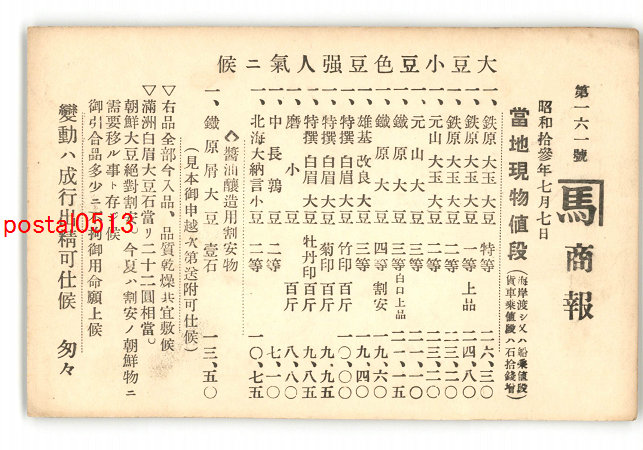 第一六一號
馬商報
昭和拾參年七月七日
當地現物値段
(海岸渡シ又ハ船乗値段)
(貨車乗値段ハ石拾錢增)
大豆小豆色豆强人氣ニ候
一、鉄原大玉大豆 特等 二六、三〇
一、鉄原大玉大豆 一等上品 二四、八〇
一、元山大玉大豆 二等 二三、二〇
一、元山大豆 三等 二一、一〇
一、鐵原大豆 三等白口上品 二一、一五
一、鐵原大豆 四等割安 一九、六〇
一、雄基改良大豆 三等 一九、四〇
一、特撰白眉大豆 竹印百斤 一〇、〇〇
一、特撰白眉大豆 菊印百斤 九、九五
一、特撰白眉大豆 牡丹印百斤 九、八五
一、磨小豆 百斤 八、八〇
一、中長鶉豆 二等 七、一〇
一、北海大納言小豆 二等 一〇、七五
◇醬油釀造用割安物
一、鐵原屑大豆 壹石 一三、五〇
(見本御申越次第送附可仕候)
▽右品全部今入品、品質乾燥共宜敷候
▽滿洲白眉大豆石當リ二十二圓相當。
朝鮮大豆絕對割安今夏ハ割安ノ朝鮮物ニ
需要移ル事ト存候
御引合品多少ニ不拘御用命願上候
變動ハ成行出精可仕候 匆々
postal0513